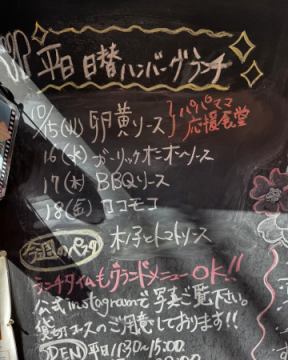 平日 日替ハンバーグランチ
10/15(火) 卵黄ソース } パパママ応援食堂
16(水) ガーリックオニオンソース
17(木) BBQソース
18(金) ロコモコ
今週のパスタ
木ノ子とトマトソース
ランチタイムもグランドメニューOK!!
公式instagramで写真ご覧下さい。
貸切コースのご用意しております!!
OPEN 平日11:30~15:00.